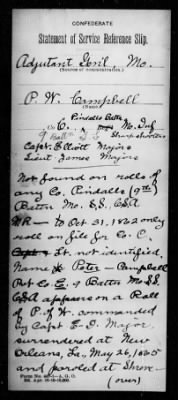 CONFEDERATE
Statement of Service Reference Slip.
Adjutant Genl. Mo.
(Source of communication.)
P. W. Campbell
(Name.)
Co C. Pindalls Battn. Mo. Inf
9 Batt'n Sharpshooters
Capt. Elliott Majors
Lieut. James Majors
Not found on rolls of
any Co. Pindalls (9th)
Battn Mo. S.S. CSA
to Oct 31, 1862 only
roll on file for Co. C.
Lt. not identified.
Name Peter Campbell
Pvt Co. E. 9 Battn Mo S.S.
CSA appears on a Roll
of P. of W. commanded
by Capt E. D. Major
surrendered at New
Orleans, La, May 26, 1865
and paroled at Shreve-
(over)